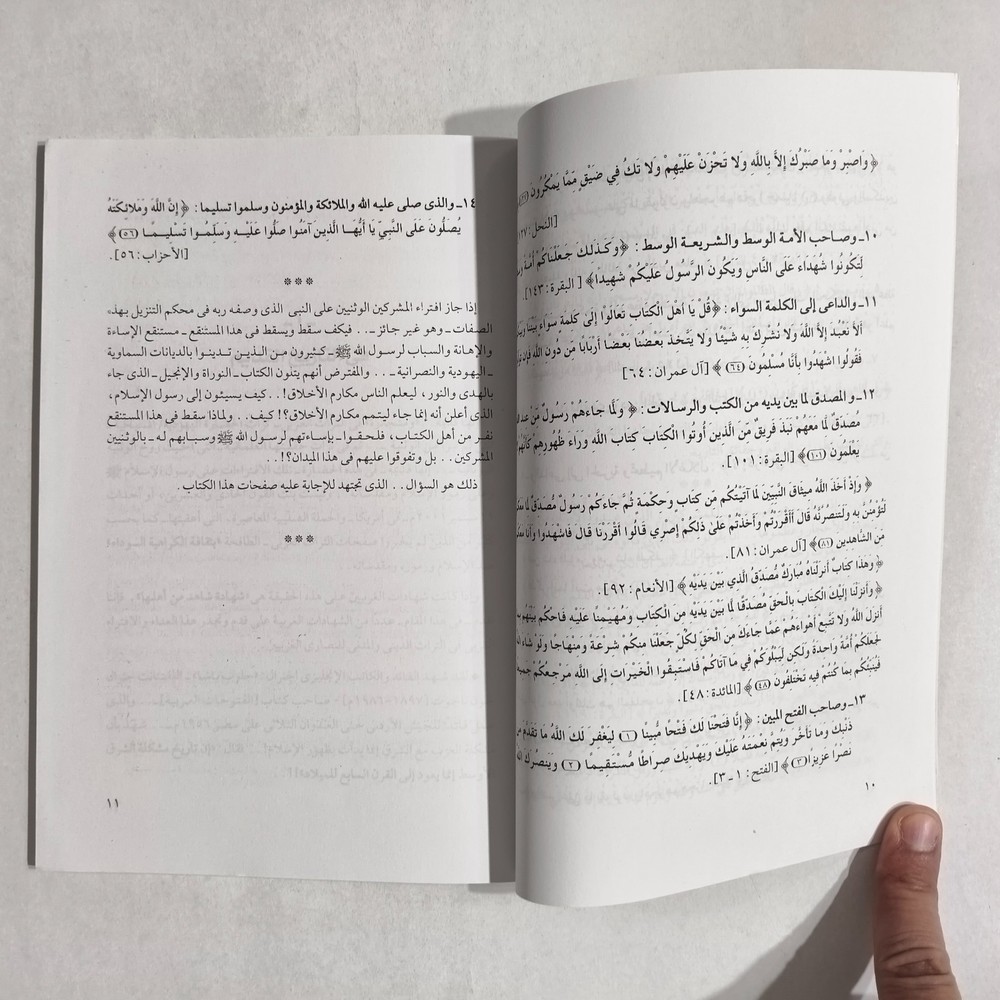 ﴿وَاصْبِرْ وَمَا صَبْرُكَ إِلاَّ بِاللَّهِ وَلا تَحْزَنْ عَلَيْهِمْ وَلا تَكُ فِي ضَيْقٍ مِّمَّا يَمْكُرُونَ
[النحل: ١٢٧
١٠ـ وصاحب الأمة الوسط والشريعة الوسط: ﴿وَكَذَلِكَ جَعَلْنَاكُمْ أُمَّةً
لِّتَكُونُوا شُهَدَاءَ عَلَى النَّاسِ وَيَكُونَ الرَّسُولُ عَلَيْكُمْ شَهِيدًا﴾ [البقرة: ١٤٣].
١١ـ والداعى إلى الكلمة السواء: ﴿قُلْ يَا أَهْلَ الْكِتَابِ تَعَالَوْا إِلَى كَلِمَةٍ سَوَاءٍ بَيْنَنَا
أَلاَّ نَعْبُدَ إِلاَّ اللَّهَ وَلا نُشْرِكَ بِهِ شَيْئًا وَلا يَتَّخِذَ بَعْضُنَا بَعْضًا أَرْبَابًا مِّن دُونِ اللَّهِ فَإِن
فَقُولُوا اشْهَدُوا بِأَنَّا مُسْلِمُونَ (٦٤)﴾ [آل عمران: ٦٤]
١٢ـ و المصدق لما بين يديه من الكتب والرسالات: ﴿وَلَمَّا جَاءَهُمْ رَسُولٌ مِّنْ عِندِ
مُصَدِّقٌ لِّمَا مَعَهُمْ نَبَذَ فَرِيقٌ مِّنَ الَّذِينَ أُوتُوا الْكِتَابَ كِتَابَ اللَّهِ وَرَاءَ ظُهُورِهِمْ كَأَنَّهُمْ
يَعْلَمُونَ (١٠١)﴾ [البقرة: ١٠١].
﴿وَإِذْ أَخَذَ اللَّهُ مِيثَاقَ النَّبِيِّينَ لَمَا آتَيْتُكُم مِّن كِتَابٍ وَحِكْمَةٍ ثُمَّ جَاءَكُمْ رَسُولٌ مُّصَدِّقٌ لِّمَا
لَتُؤْمِنُنَّ بِهِ وَلَتَنصُرُنَّهُ قَالَ أَأَقْرَرْتُمْ وَأَخَذْتُمْ عَلَى ذَلِكُمْ إِصْرِي قَالُوا أَقْرَرْنَا قَالَ فَاشْهَدُوا وَأَنَا
مِّنَ الشَّاهِدِينَ (٨١)﴾ [آل عمران: ٨١].
﴿وَهَذَا كِتَابٌ أَنزَلْنَاهُ مُبَارَكٌ مُّصَدِّقُ الَّذِي بَيْنَ يَدَيْهِ﴾ [الأنعام: ٩٢].
﴿وَأَنزَلْنَا إِلَيْكَ الْكِتَابَ بِالْحَقِّ مُصَدِّقًا لِّمَا بَيْنَ يَدَيْهِ مِنَ الْكِتَابِ وَمُهَيْمِنًا عَلَيْهِ فَاحْكُم بَيْنَهُم
أَنزَلَ اللَّهُ وَلا تَتَّبِعْ أَهْوَاءَهُمْ عَمَّا جَاءَكَ مِنَ الْحَقِّ لِكُلٍّ جَعَلْنَا مِنكُمْ شِرْعَةً وَمِنْهَاجًا وَلَوْ شَاءَ
لَجَعَلَكُمْ أُمَّةً وَاحِدَةً وَلَكِن لِّيَبْلُوَكُمْ فِي مَا آتَاكُمْ فَاسْتَبِقُوا الْخَيْرَاتِ إِلَى اللَّهِ مَرْجِعُكُمْ
فَيُنَبِّئُكُم بِمَا كُنتُمْ فِيهِ تَخْتَلِفُونَ (٤٨)﴾ [المائدة: ٤٨].
١٣ـ وصاحب الفتح المبين: ﴿إِنَّا فَتَحْنَا لَكَ فَتْحًا مُّبِينًا (١) لِيَغْفِرَ لَكَ اللَّهُ مَا تَقَدَّمَ
ذَنْبِكَ وَمَا تَأَخَّرَ وَيُتِمَّ نِعْمَتَهُ عَلَيْكَ وَيَهْدِيَكَ صِرَاطًا مُّسْتَقِيمًا (٢) وَيَنصُرَكَ
نَصْرًا عَزِيزًا (٣)﴾ [الفتح: ١ـ٣].
١٠
١٤ـ والذى صلى عليه الله والملائكة والمؤمنون وسلموا تسليما: ﴿إِنَّ اللَّهَ وَمَلائِكَتَهُ
يُصَلُّونَ عَلَى النَّبِيِّ يَا أَيُّهَا الَّذِينَ آمَنُوا صَلُّوا عَلَيْهِ وَسَلِّمُوا تَسْلِيمًا (٥٦)﴾
[الأحزاب: ٥٦].
***
إذا جاز افتراء المشركين الوثنيين على النبى الذى وصفه ربه فى محكم التنزيل بهذه
الصفات ـ وهو غير جائز ـ.. فكيف سقط ويسقط فى هذا المستنقع ـ مستنقع الإساءة
والإهانة والسباب لرسول الله ﷺ ـ كثيرون من الذين تدينوا بالديانات السماوية
ـ اليهودية والنصرانية ـ.. والمفترض أنهم يتلون الكتاب ـ التوراة والإنجيل ـ الذى جاء
بالهدى والنور، ليعلم الناس مكارم الأخلاق؟!.. كيف يسيئون إلى رسول الإسلام،
الذى أعلن أنه إنما جاء ليتمم مكارم الأخلاق؟! كيف.. ولماذا سقط فى هذا المستنقع
نفر من أهل الكتاب، فلحقوا ـ بإساءتهم لرسول الله ﷺ وسبابهم له ـ بالوثنيين
المشركين.. بل وتفوقوا عليهم فى هذا الميدان؟!..
ذلك هو السؤال.. الذى تجتهد للإجابة عليه صفحات هذا الكتاب.
***
١١